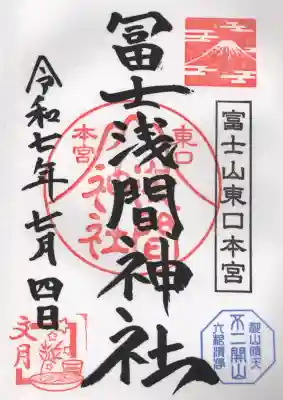 富士山東口本宮
冨士浅間神社
東口
本宮
不二開山
六根清浄
令和七年七月四日
文月